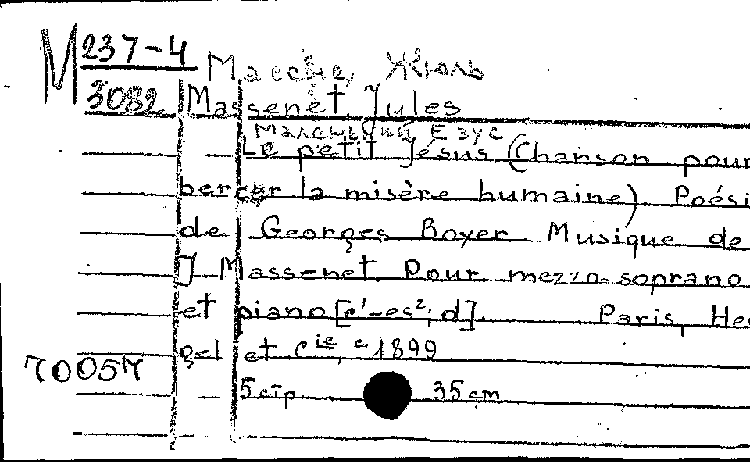 M 237-4
3082
Массне, Жюль
Massenet Jules
Маленький Езус
Le petit Jésus (Chanson pour
bercer la misère humaine) Poési
de Georges Boyer Musique de
J Massenet Pour mezzo-soprano
et piano [c¹-es²; d]. Paris, Heu
gel et Cie, c 1899
70057
5 стр 35 cm